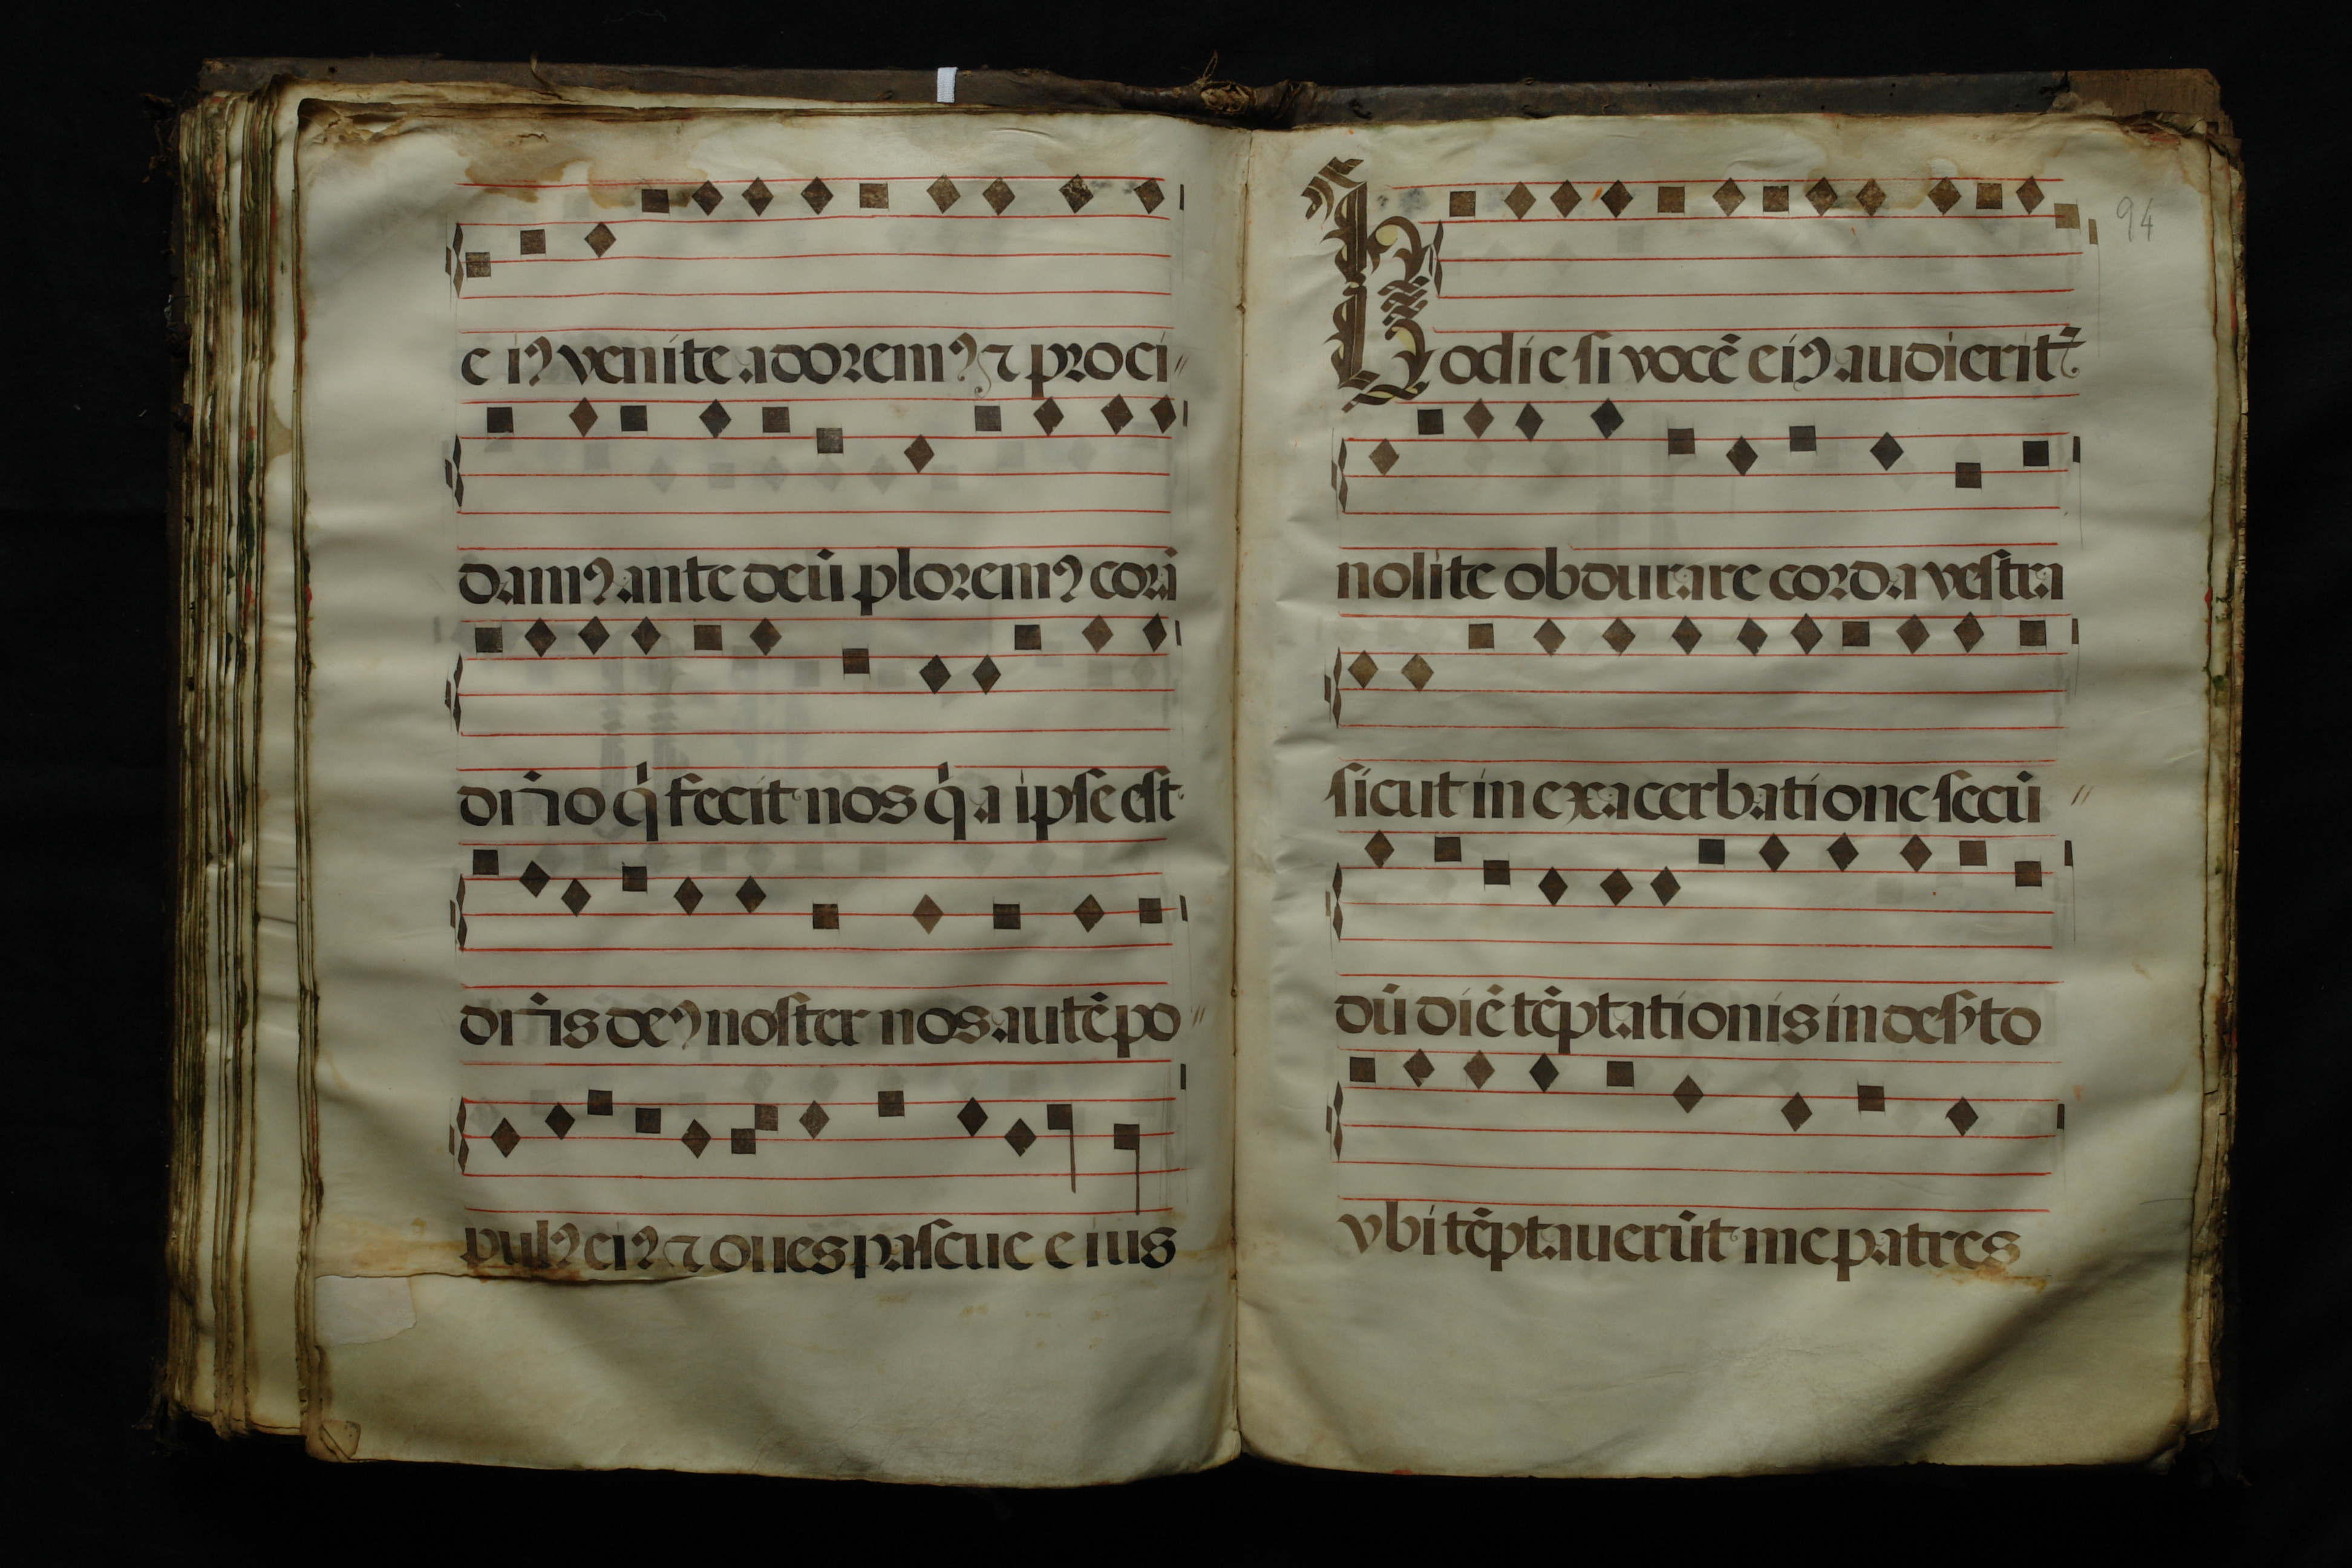 eiꝰ venite adoremꝰ ⁊ proci〃
damꝰ ante deū ploremꝰ corā
dn̄o q̇ fecit nos q̇a ipse est
dn̄s deꝰ noster nos autē po〃
pulꝰ eiꝰ ⁊ oues pascue eius
94
Hodie si vocē eiꝰ audieritꝭ
nolite obdurare corda vestra
sicut in exacerbatione secū〃
dū diē tēptationis in des̄to
vbi tēptauerūt me patres